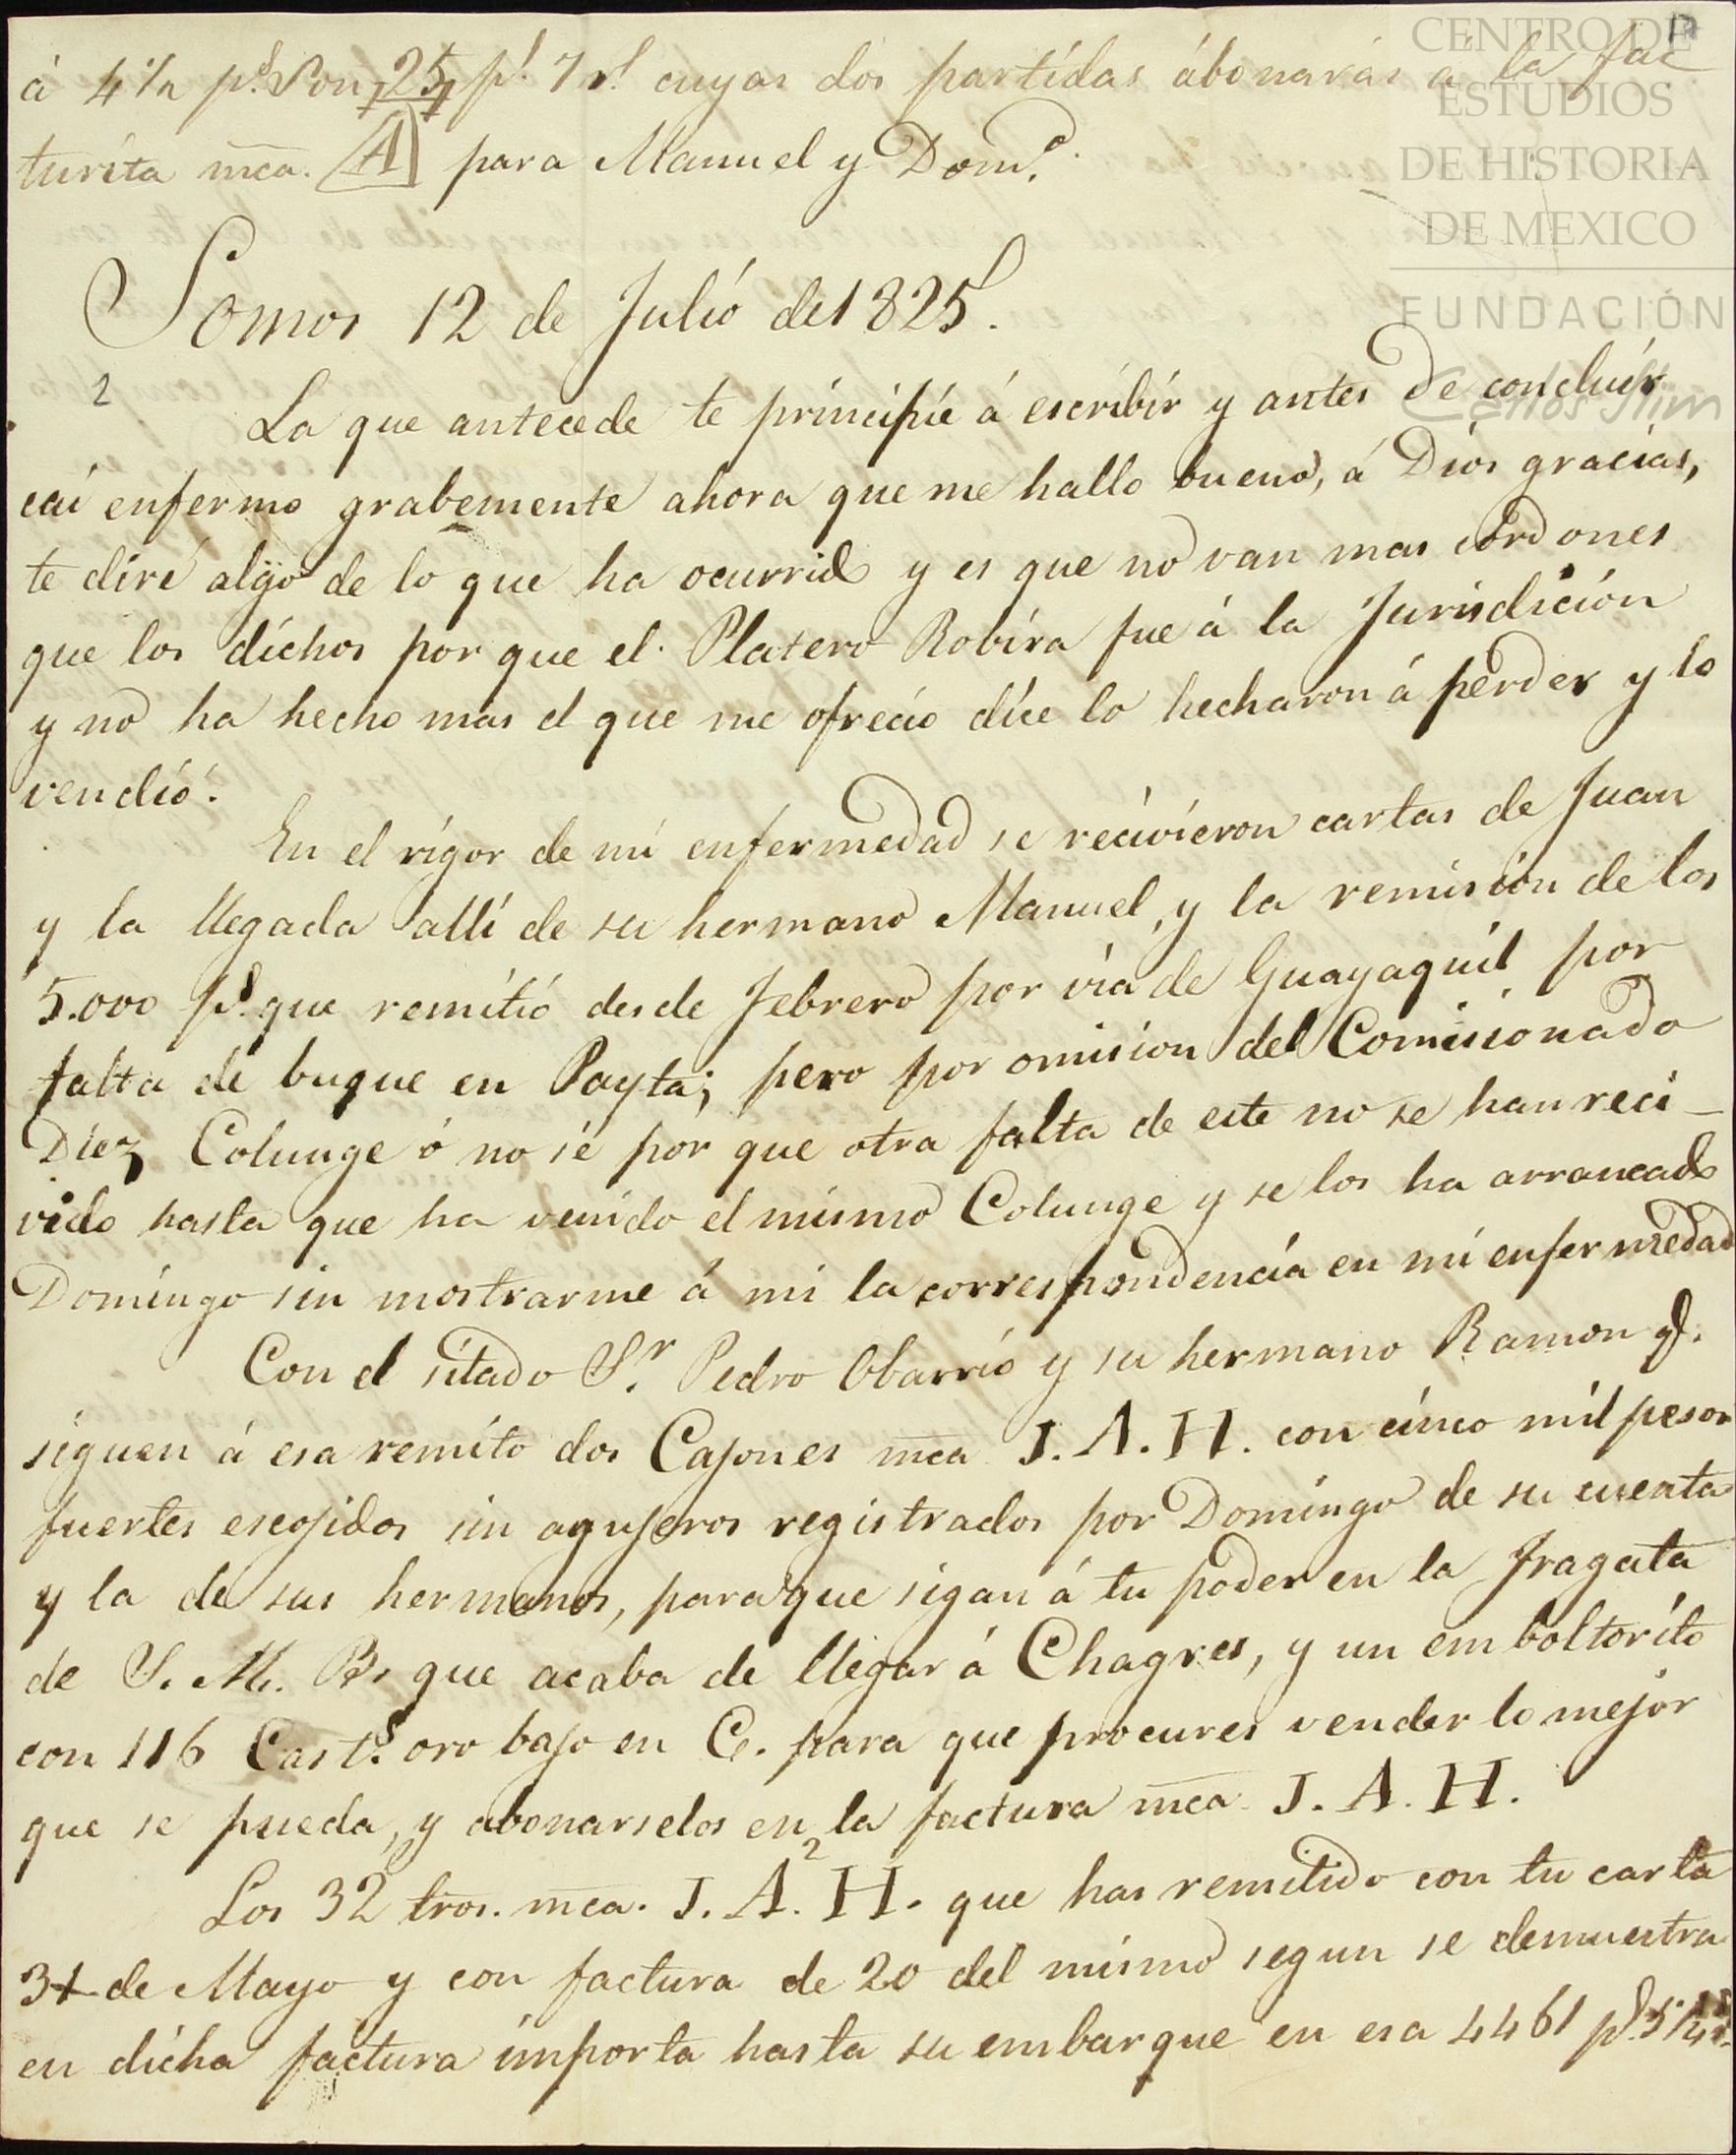 CENTRO DE
ESTUDIOS
DE HISTORIA
DE MEXICO
FUNDACIÓN
Carlos Slim
á 4½ ps. Son 25 ps. 7 rs. cuyas dos partidas ábonarás á la fac
turita mca. A para Manuel y Domo.
Somos 12 de Julio de 1825.
2
La que antecede te principié á escribir y antes de concluir
caí enfermo grabemente ahora que me hallo bueno, á Dios gracias,
te diré algo de lo que ha ocurrido y es que no van mas cordones
que los dichos por que el Platero Robira fue á la Jurisdicion
y no ha hecho mas el que me ofrecio dice lo hecharon á perder y lo
vendió.
En el rigor de mi enfermedad se recivieron cartas de Juan
y la llegada allí de su hermano Manuel, y la remision de los
5.000 ps. que remitió desde Febrero por via de Guayaquil por
falta de buque en Payta; pero por omision del Comisionado
Diez Colunge ó no sé por que otra falta de este no se han reci-
vido hasta que ha venido el mismo Colunge y se los ha arrancado
Domingo sin mostrarme á mi la correspondencia en mi enfermedad
Con el sitado Sr. Pedro Obarrio y su hermano Ramon q.
siguen á esa remito dos Cajones mca J. A. H. con cinco mil pesos
fuertes escojidos sin agujeros registrados por Domingo de su cuenta
y la de sus hermanos, para que sigan á tu poder en la Fragata
de S. M. B. que acaba de llegar á Chagres, y un emboltorito
con 116 Casts. oro bajo en C. para que procures vender lo mejor
que se pueda, y abonarselos en la factura mca. J. A. H.
Los 32 tros. mca. J. A.2 H. que has remitido con tu carta
31 de Mayo y con factura de 20 del mismo segun se demuestra
en dicha factura importa hasta su embarque en esa 4461 ps.